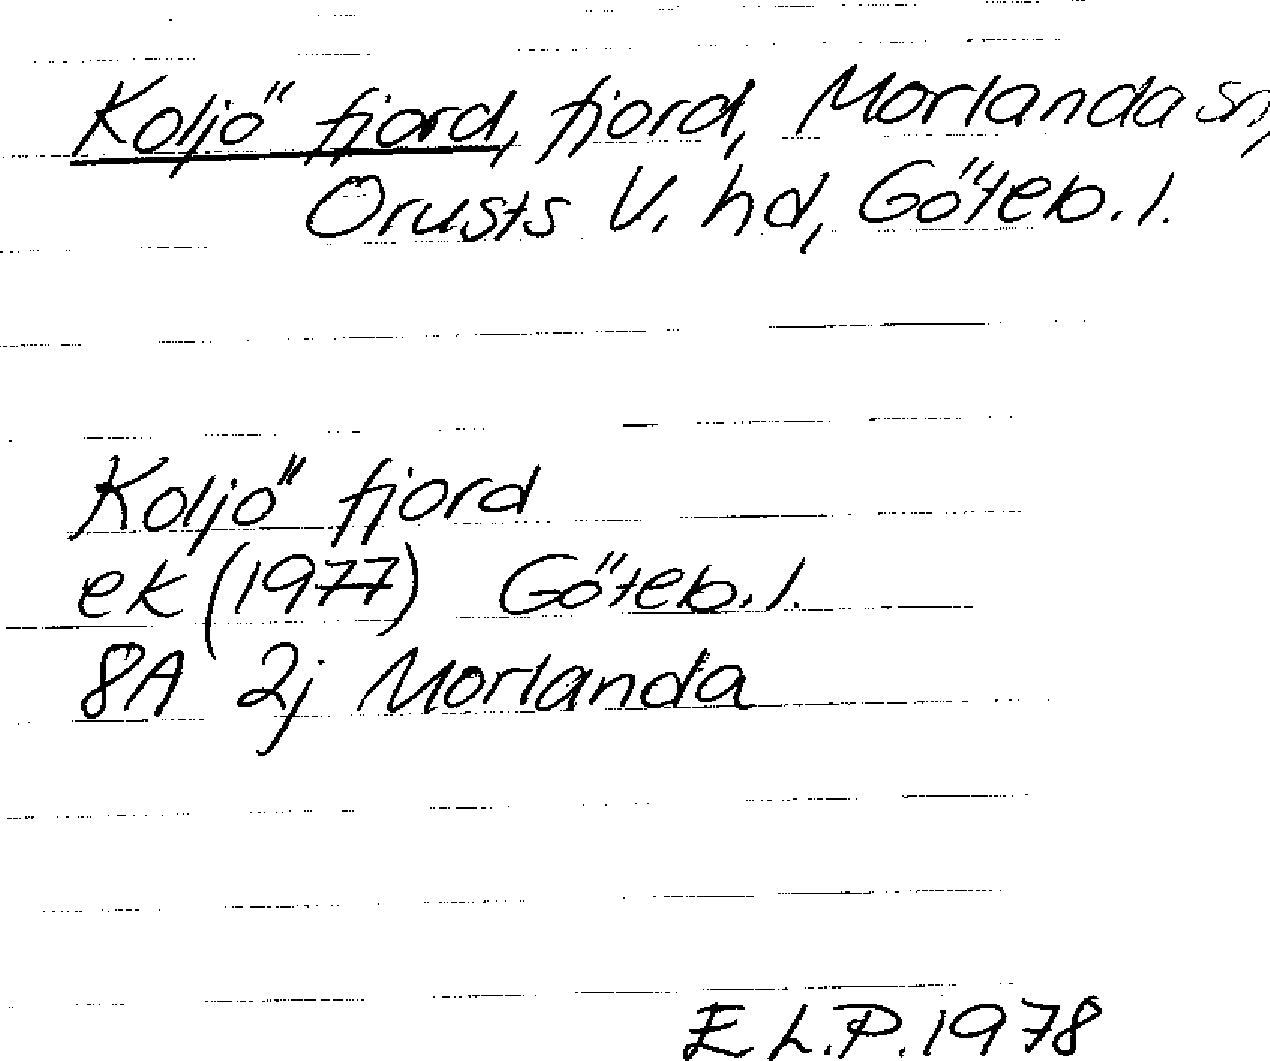 Koljö fjord, fjord, Morlanda sn,
Orusts V. hd, Göteb. l.
Koljö fjord
ek (1977) Göteb. l.
8A 2j Morlanda
E L.P. 1978